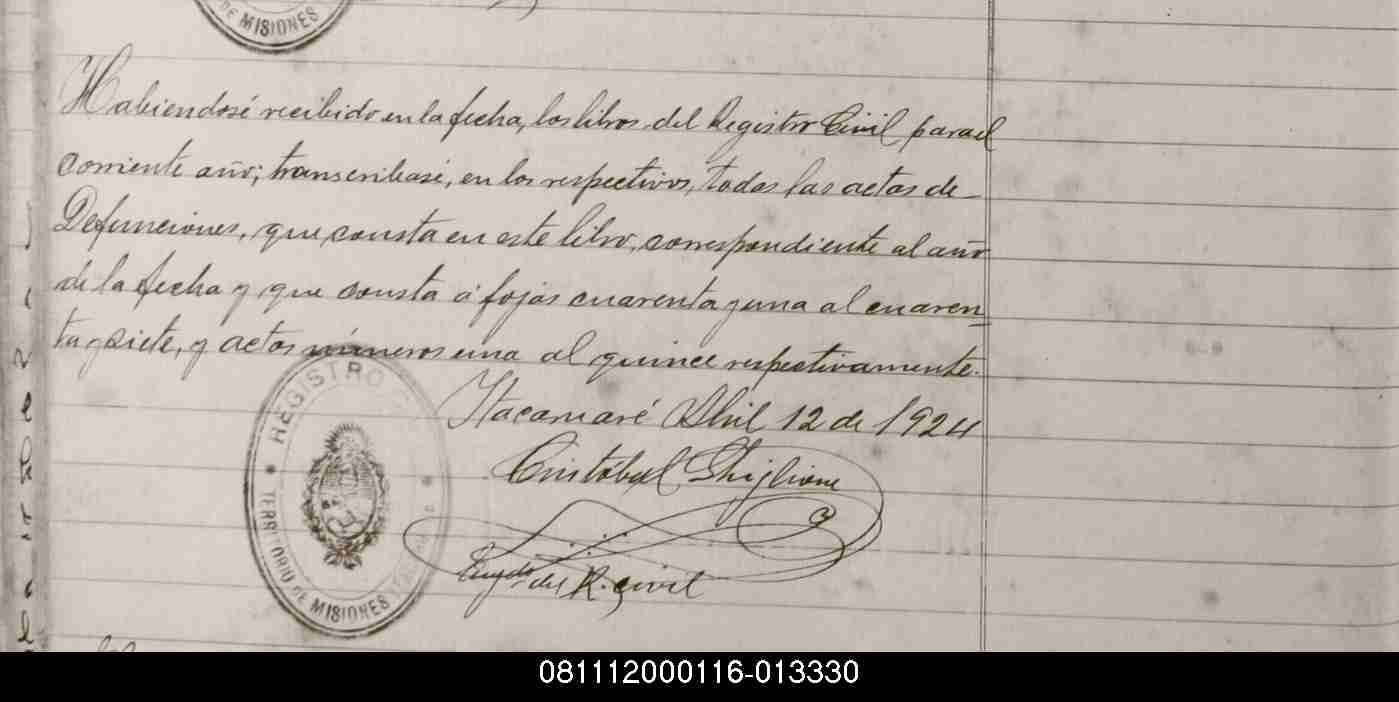 DE MISIONES
Habiendosé recibido en la fecha, los libros del Registro Civil para el
corriente año; transcribasé, en los respectivos, todas las actas de
Defunciones, que consta en este libro, correspondiente al año
de la fecha y que consta á fojas cuarenta y una al cuaren
ta y siete, y actas números una al quince respectivamente.
Itacaruaré Abril 12 de 1924
Cristobal Ghiglione
del R. Civil
REGISTRO
TERRITORIO DE MISIONES
081112000116-013330